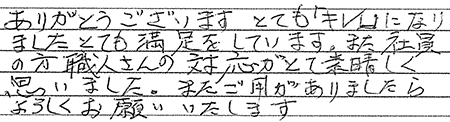 ありがとうございます とても「キレイ」になり
ましたとても満足をしています。また社員
の方職人さんの対応がとて素晴しく
思いました。またご用がありましたら
よろしくお願いいたします